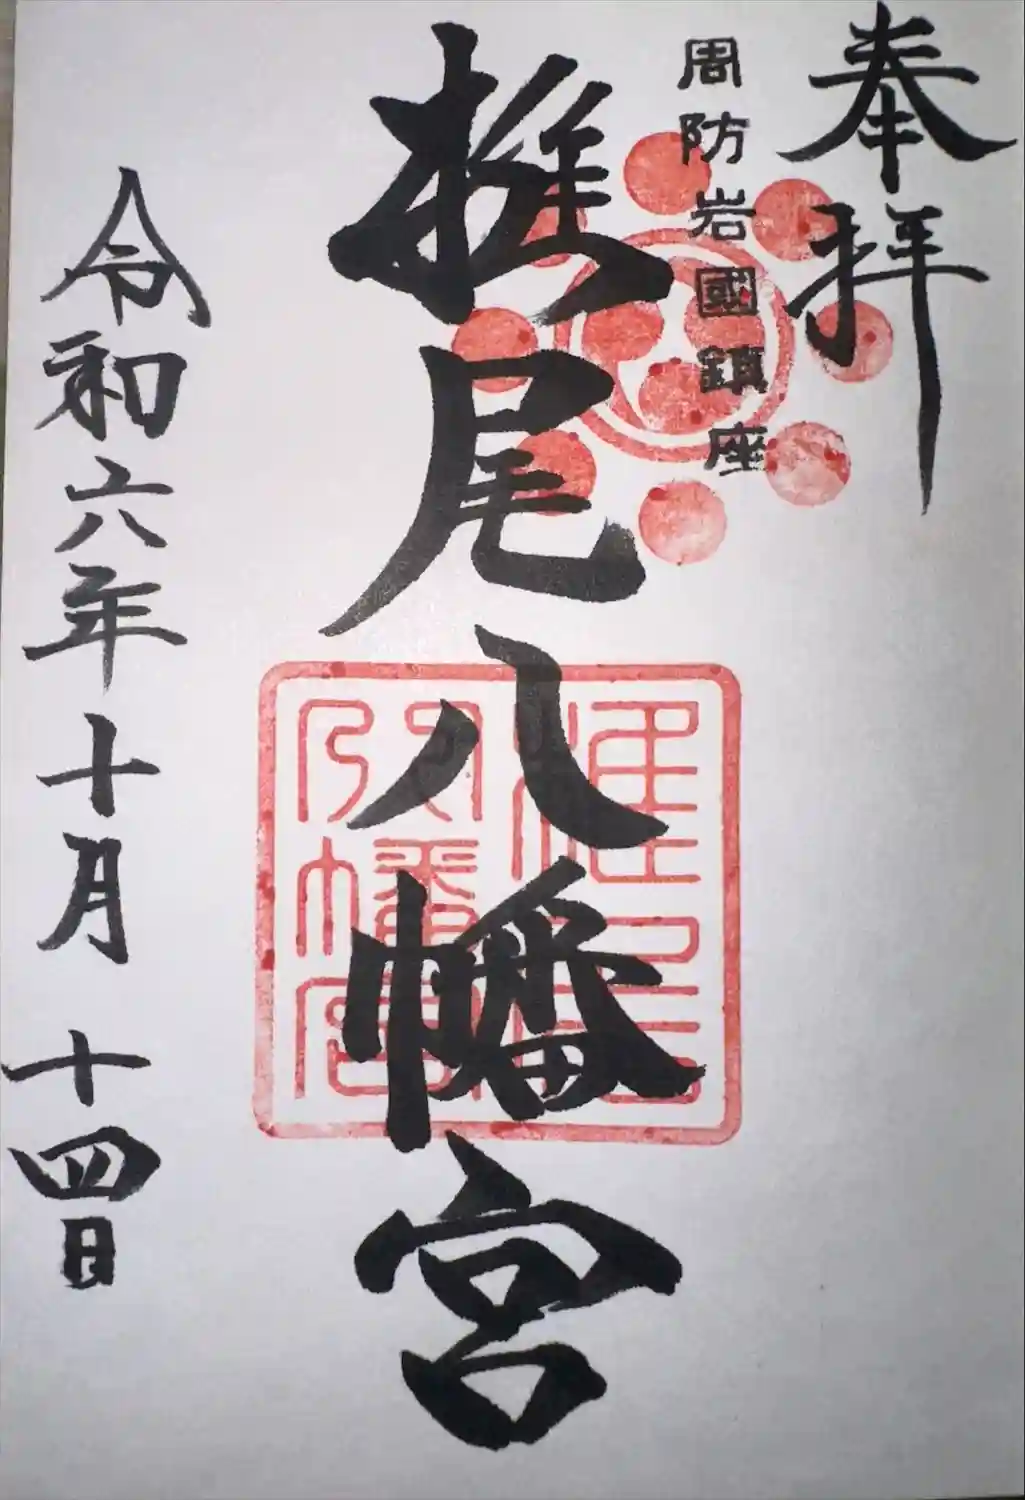 奉拝
周防岩國鎮座
椎尾八幡宮
令和六年十月十四日
椎尾
八幡宮